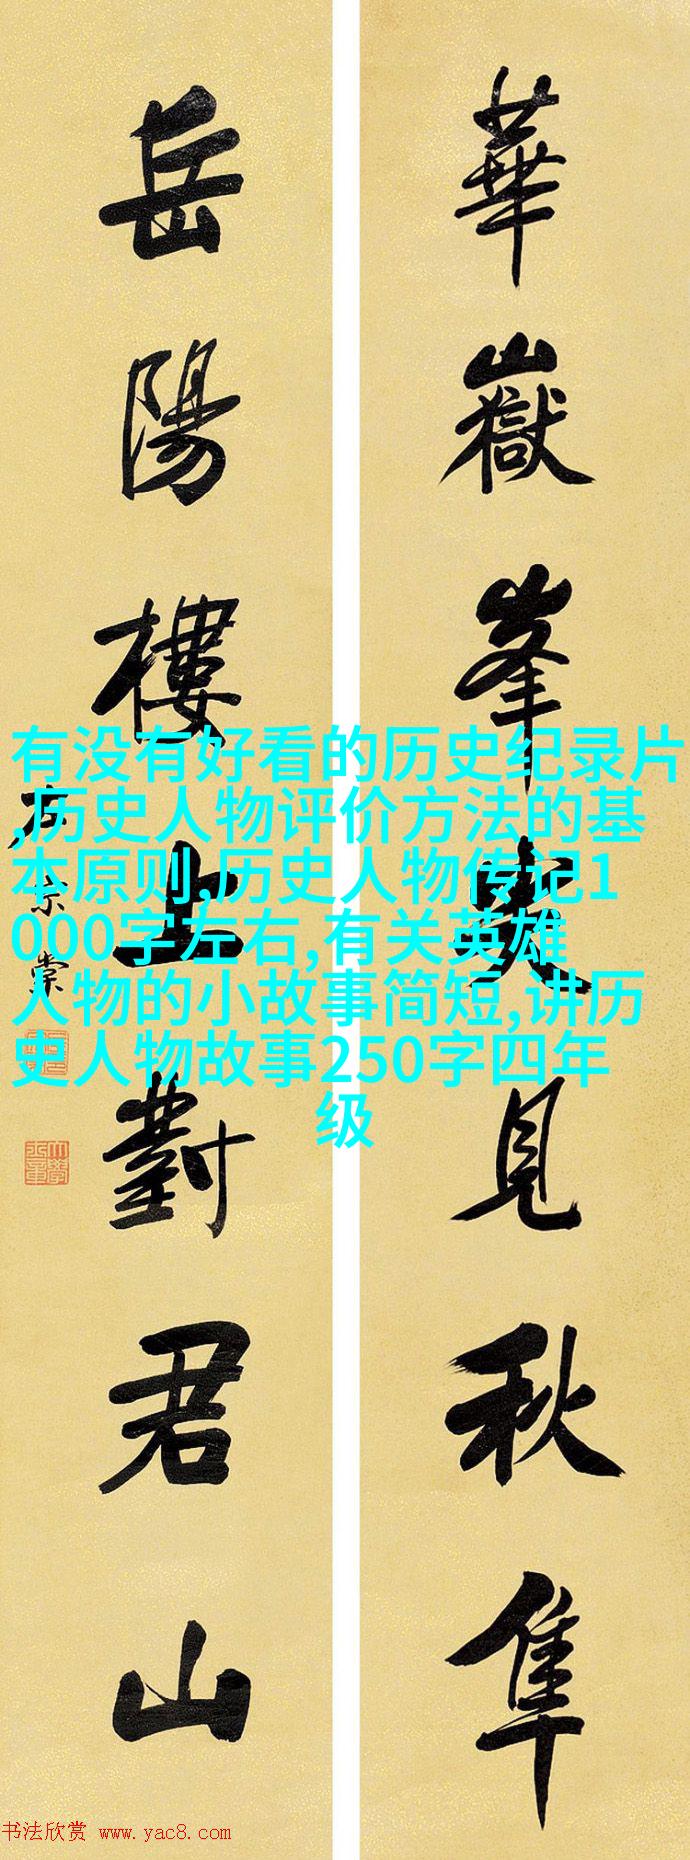 華嶽峯尖見秋隼
岳陽樓上對君山
左宗棠
有没有好看的历史纪录片
,历史人物评价方法的基
本原则,历史人物传记1
000字左右,有关英雄
人物的小故事简短,讲历
史人物故事250字四年
级
书法欣赏 www.yac8.com